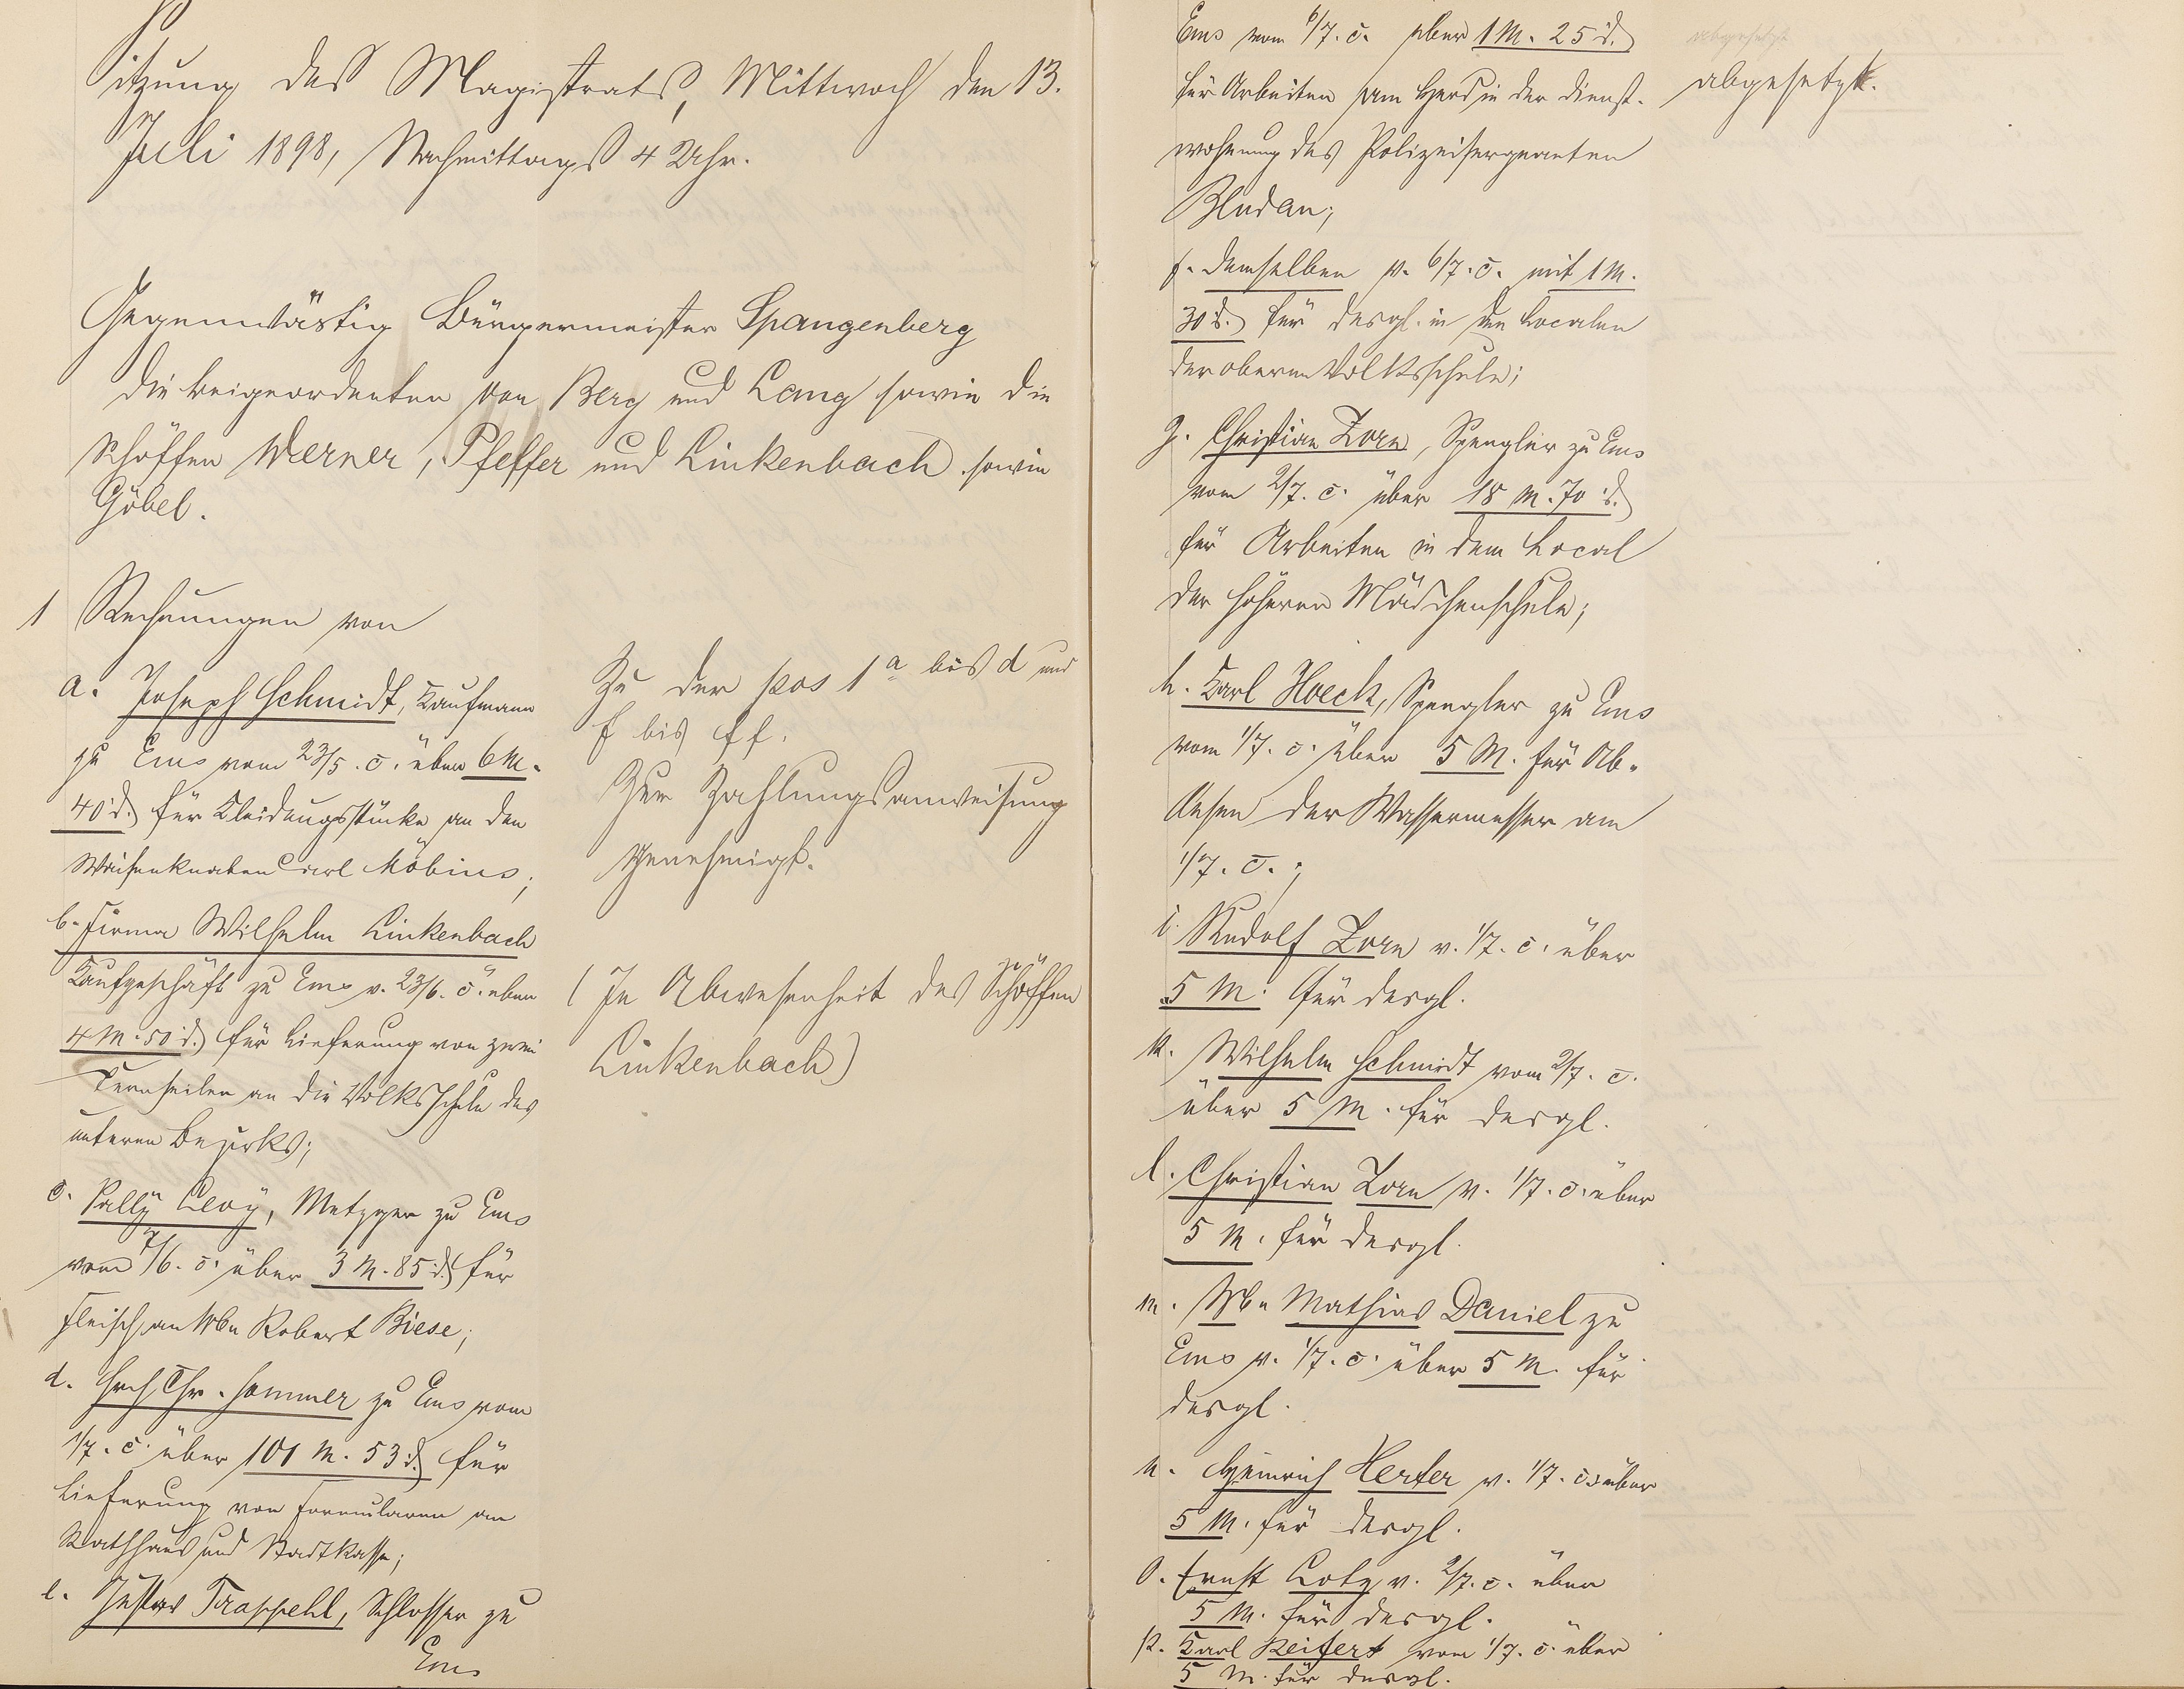 Sitzung des Magistrats, Mittwoch den 13.
Juli 1898, Nachmittags 4 Uhr.
Gegenwärtig Bürgermeister Spangenberg
die Beigeordneten von Berg und Lang sowie die
Schöffen Werner, Pfeffer und Linkenbach sowie
Göbel.
1 Rechnungen von
a. Joseph Schmidt, Kaufmann
zu Ems vom 23/5. c. über 6 M.
40 d. für Kleidungsstücke an den
Waisenknaben Carl Möbius;
b. Firma Wilhelm Linkenbach
Kaufgeschäft zu Ems v. 23/6. c. über
4 M. 50 d. für Lieferung von zwei
Turnseilen an die Volksschule des
unteren Bezirks;
c. Sally Levy, Metzger zu Ems
vom 7/6. c. über 3 M. 85 d. für
Fleisch an Wbe Robert Biese;
d. Hrch. Chr. Sommer zu Ems vom
1/7. c. über 101 M. 53 d. für
Lieferung von Formularen an
Rathhaus und Stadtkasse;
e. Gustav Trappehl, Schlosser zu
Ems
Zu der pos 1 a bis d und
f bis ff.
Zur Zahlungsanweisung
genehmigt.
(In Abwesenheit des Schöffen
Linkenbach)
Ems vom 6/7. c. über 1 M. 25 d.
für Arbeiten am Herd in der Dienst-
wohnung des Polizeisergeanten
Bludau;
f. demselben v. 6/7. c. mit 1 M.
30 d. für desgl. in den Localen
der oberen Volksschule;
g. Christian Zorn, Spengler zu Ems
vom 2/7. c. über 18 M. 70 d.
für Arbeiten in dem Local
der höheren Mädchenschule;
h. Karl Hoeck, Spengler zu Ems
vom 1/7. c. über 5 M. für Ab-
lesen der Wassermesser am
1/7. c.;
i. Rudolf Zorn v. 1/7. c. über
5 M. für desgl.
k. Wilhelm Schmidt vom 2/7. c.
über 5 M. für desgl.
l. Christian Zorn v. 1/7. c. über
5 M. für desgl.
m. Wbe Mathias Daniel zu
Ems v. 1/7. c. über 5 M. für
desgl.
n. Heinrich Herfer v. 1/7. c. über
5 M. für desgl.
o. Ernst Lotz v. 2/7. c. über
5 M. für desgl.
p. Karl Reifert vom 1/7. c. über
5 M. für desgl.
abgesetzt
abgesetzt.